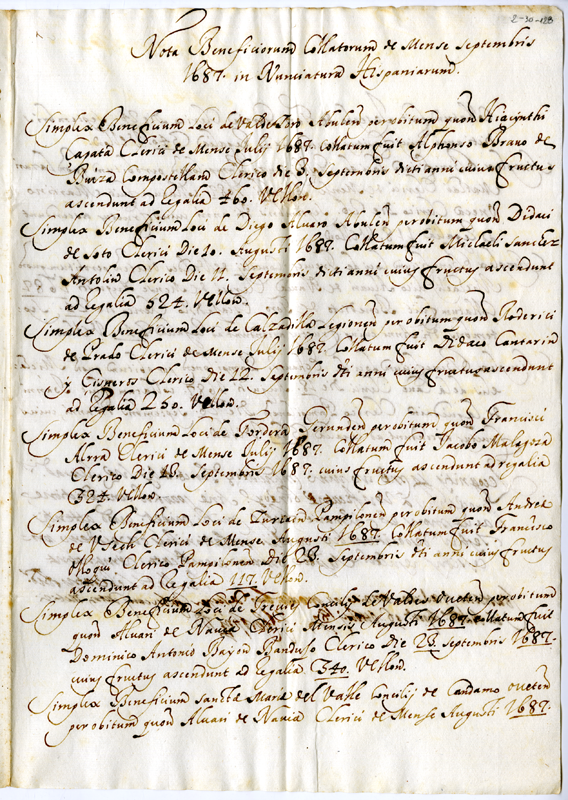 2-30-123
Nota Beneficiorum Collatorum de Mense Septembris
1687. in Nunciatura Hispaniarum.
Simplex Beneficium Loci de Abulen per obitum quon Hiacynthi
Capata Clerici de Mense Julij 1687. Collatum fuit Alphonso Bravo de
Buiza Compostellan Clerico die 3. Septembris dicti anni cuius fructus
ascendunt ad Regalia 460. Vellon.
Simplex Beneficium Loci de Diego Alvaro Abulen per obitum quon Didaci
de Soto Clerici Die 10. Augusti 1687. Collatum fuit Michaeli Sanchez
Antolin Clerico Die 11. Septembris dicti anni cuius fructus ascendunt
ad Regalia 524. Vellon.
Simplex Beneficium Loci de Calzadilla Legionen per obitum quon Roderici
de Prado Clerici de Mense Julij 1687. Collatum fuit Didaco Cantarin
y Cisneros Clerico Die 12. Septembris dti anni cuius fructus ascendunt
ad Regalia 250. Vellon.
Simplex Beneficium Loci de Gerunden per obitum quon Francisci
Clerici de Mense Julij 1687. Collatum fuit Jacobo
Clerico Die 18. Septembris 1687. cuius fructus ascendunt ad regalia
324. Vellon.
Simplex Beneficium Loci de Pampilonen per obitum quon Andrea
de Clerici de Mense Augusti 1687. Collatum fuit Francisco
Clerico Pampilonen Die 28. Septembris dti anni cuius fructus
ascendunt ad Regalia 117. Vellon.
Simplex Beneficium Loci de Concilij de Valdes Oveten per obitum
quon Alvari de Navia Clerici Mensis Augusti 1687. Collatum fuit
Dominico Antonio Bayon Clerico Die 23. Septembris 1687.
cuius fructus ascendunt ad Regalia 340. Vellon.
Simplex Beneficium Sancta Maria del Valle Concilij de Candamo Oveten
per obitum quon Alvari de Navia Clerici de Mense Augusti 1687.